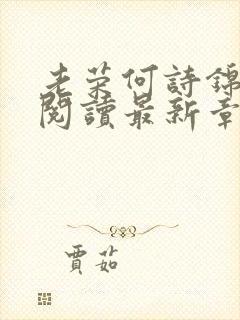 老荣何詩錦
閱讀最新章
賈茹